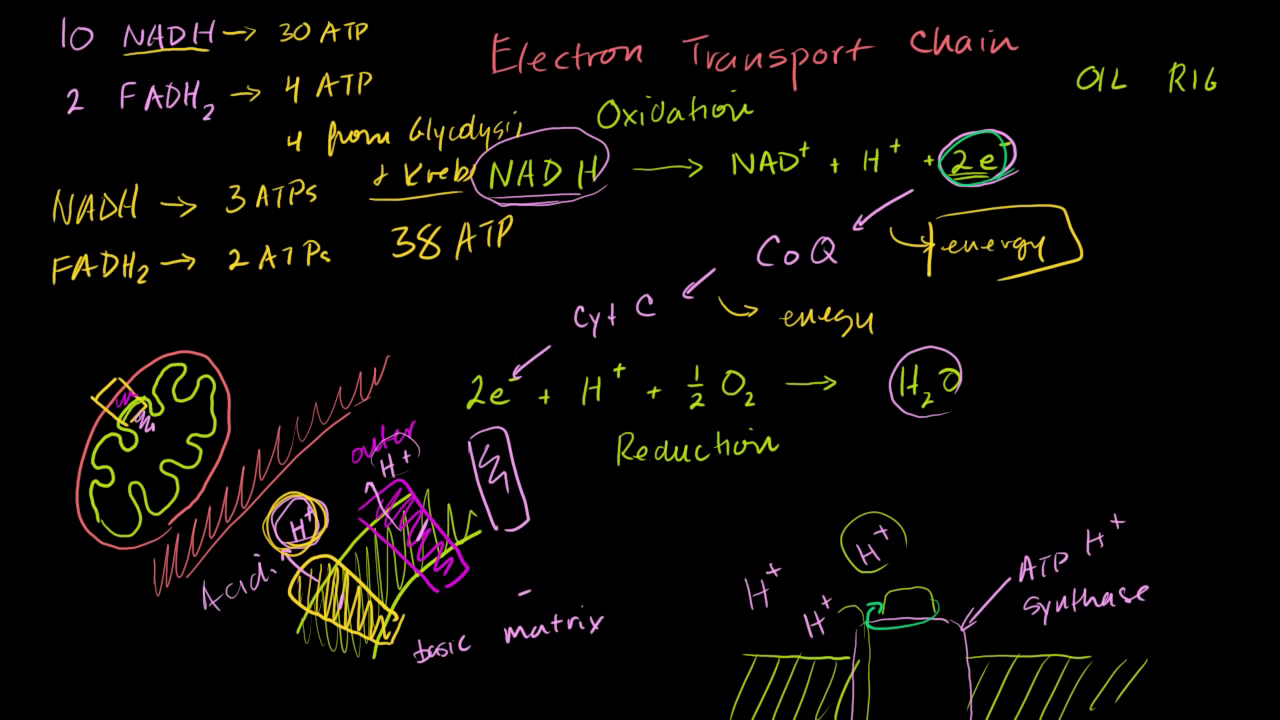 10 NADH → 30 ATP
2 FADH₂ → 4 ATP
4 from Glycolysis
+ Krebs
38 ATP
NADH → 3 ATPs
FADH₂ → 2 ATPs
Electron Transport Chain
OIL RIG
Oxidation
NADH → NAD⁺ + H⁺ + 2e⁻
CoQ
energy
Cyt C
energy
2e⁻ + H⁺ + ½ O₂ → H₂O
Reduction
outer
H⁺
H⁺
Acidic
basic matrix
H⁺
H⁺
H⁺
H⁺
ATP
synthase